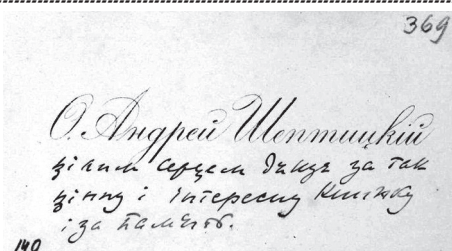 369
О. Андрей Шептицкій
цілим серцем дякує за так
цінну і інтересну книжку
і за память.
140